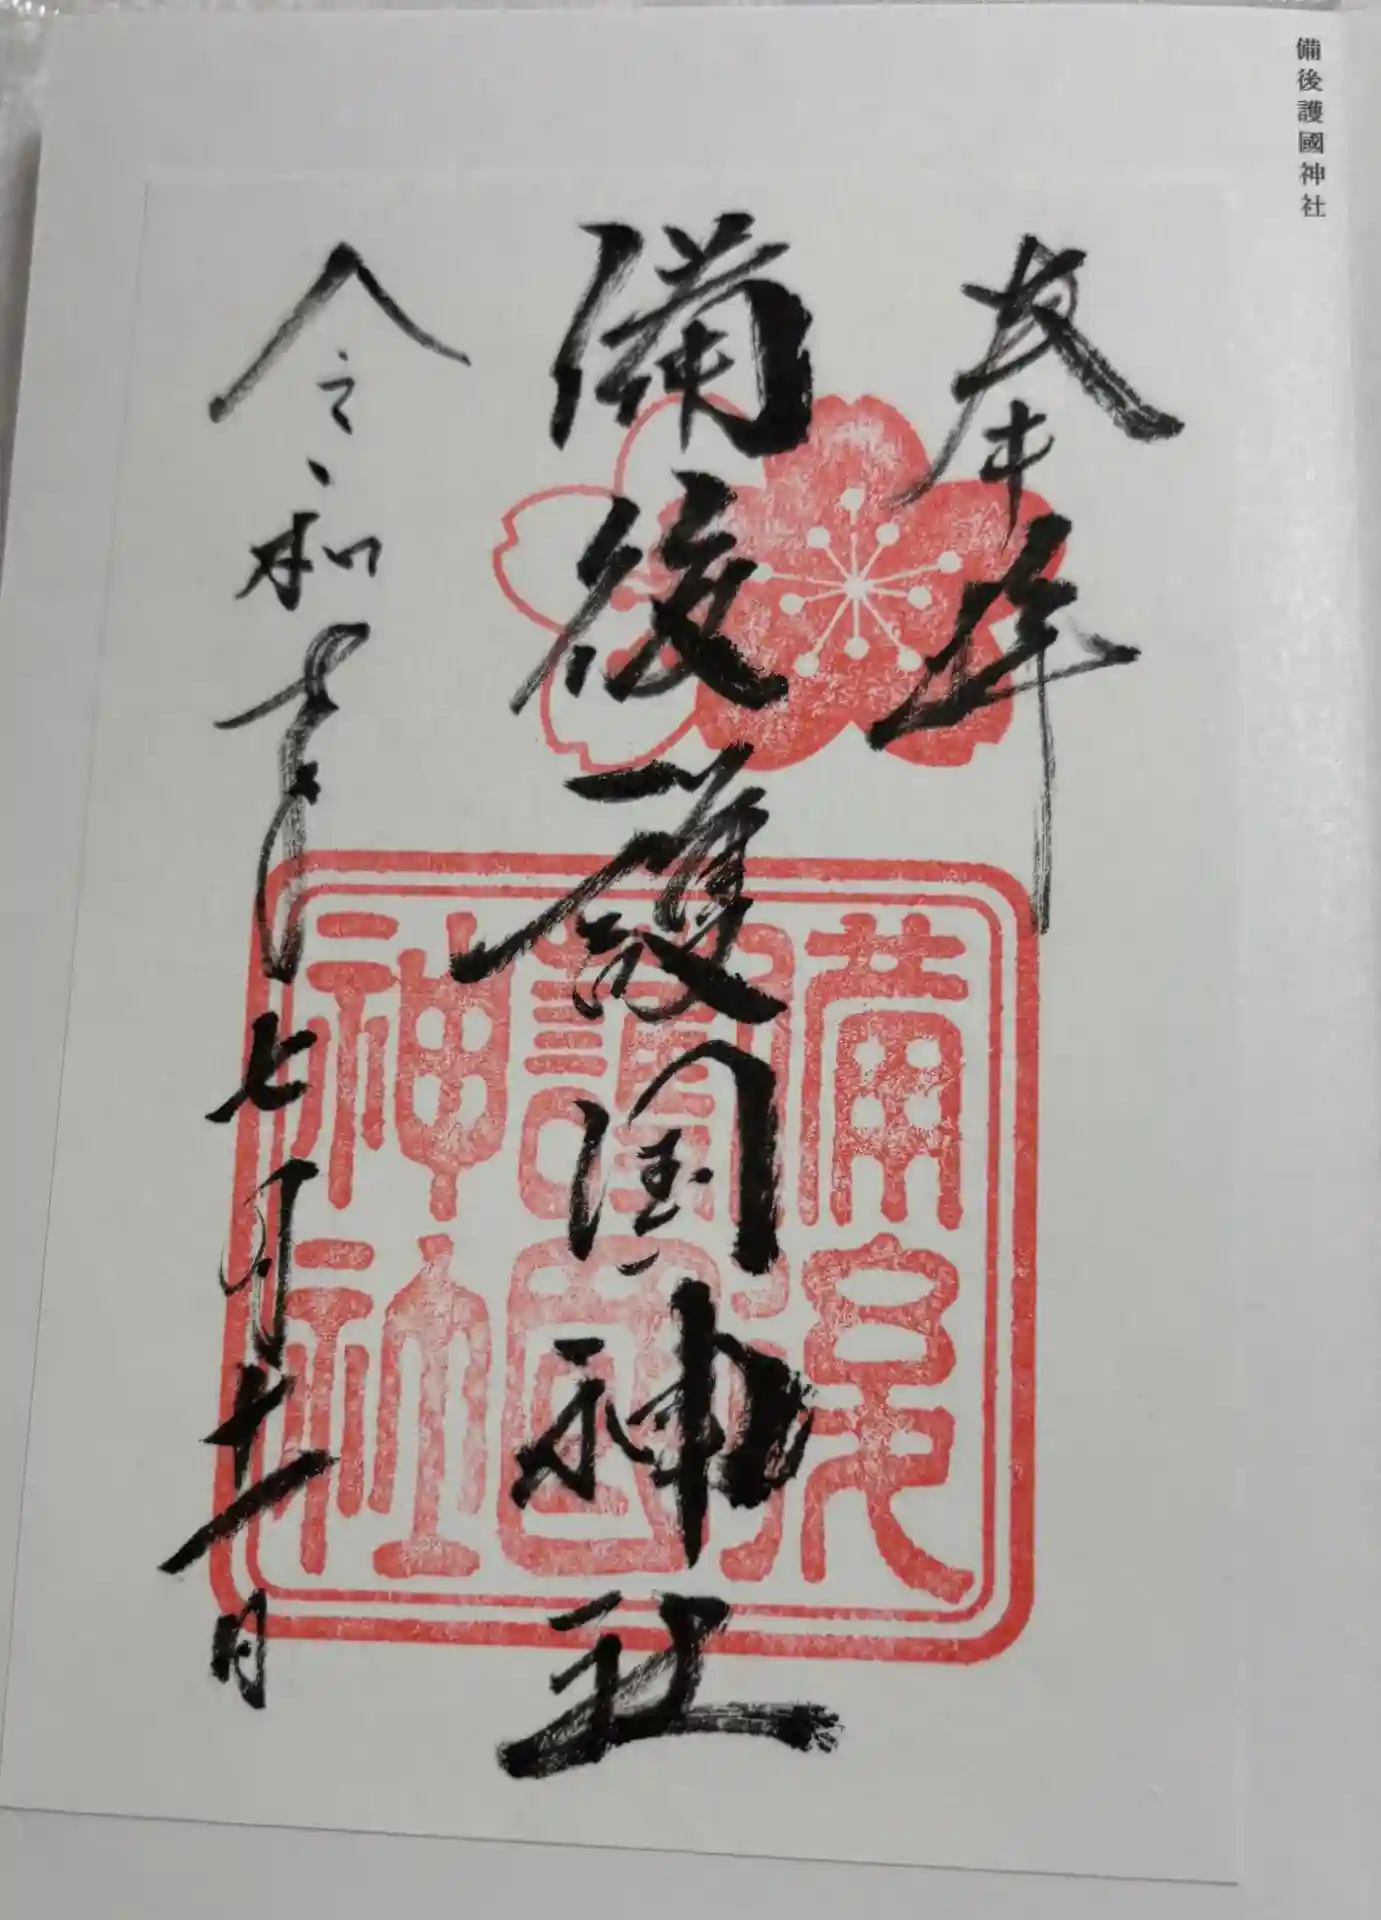 備後護國神社
奉拝
備後護国神社
備後
護國
神社
令和年七月十一日